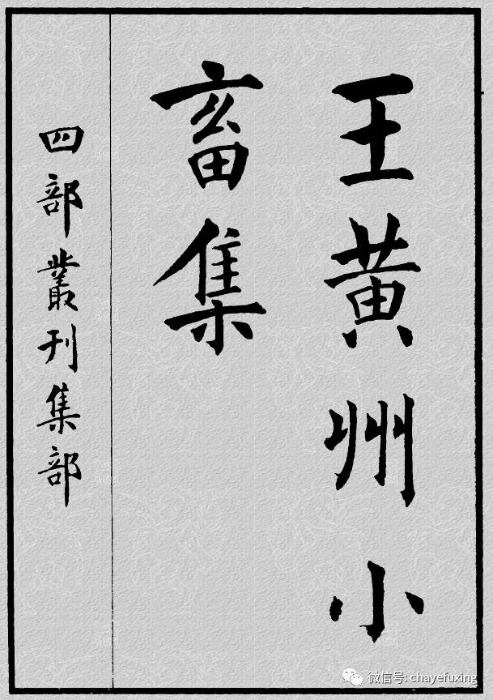 王黃州小
畜集
四部叢刊集部
微信号: chayefuxing